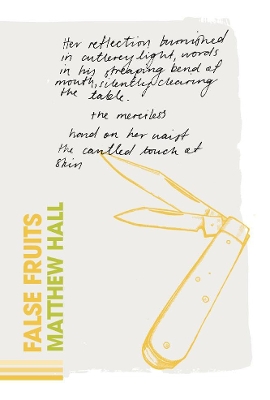 Her reflection burnished
in cutlery light, words
in his shaping bend of
mouth, silently clearing
the table.
the merciless
hand on her waist
the cantled touch at
skin
FALSE FRUITS
MATTHEW HALL